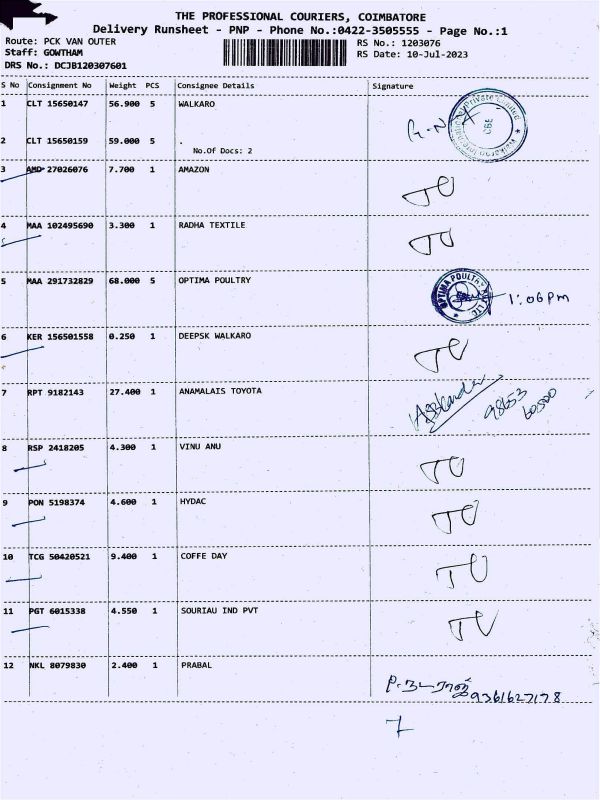 THE PROFESSIONAL COURIERS, COIMBATORE
Delivery Runsheet - PNP - Phone No.:0422-3505555 - Page No.:1
Route: PCK VAN OUTER RS No.: 1203076
Staff: GOWTHAM RS Date: 10-Jul-2023
DRS No.: DCJB120307601
S No Consignment No Weight PCS Consignee Details Signature
1 CLT 15650147 56.900 5 WALKARO
2 CLT 15650159 59.000 5
No.Of Docs: 2
3 AMD 27026076 7.700 1 AMAZON
4 MAA 102495690 3.300 1 RADHA TEXTILE
5 MAA 291732829 68.000 5 OPTIMA POULTRY
OPTIMA POULTRY PVT LTC 1:06 Pm
6 KER 156501558 0.250 1 DEEPSK WALKARO
7 RPT 9182143 27.400 1 ANAMALAIS TOYOTA
98653
60500
8 RSP 2418205 4.300 1 VINU ANU
9 PON 5198374 4.600 1 HYDAC
10 TCG 50420521 9.400 1 COFFE DAY
11 PGT 6015338 4.550 1 SOURIAU IND PVT
12 NKL 8079830 2.400 1 PRABAL
P. நடராஜ்
9361627178
7